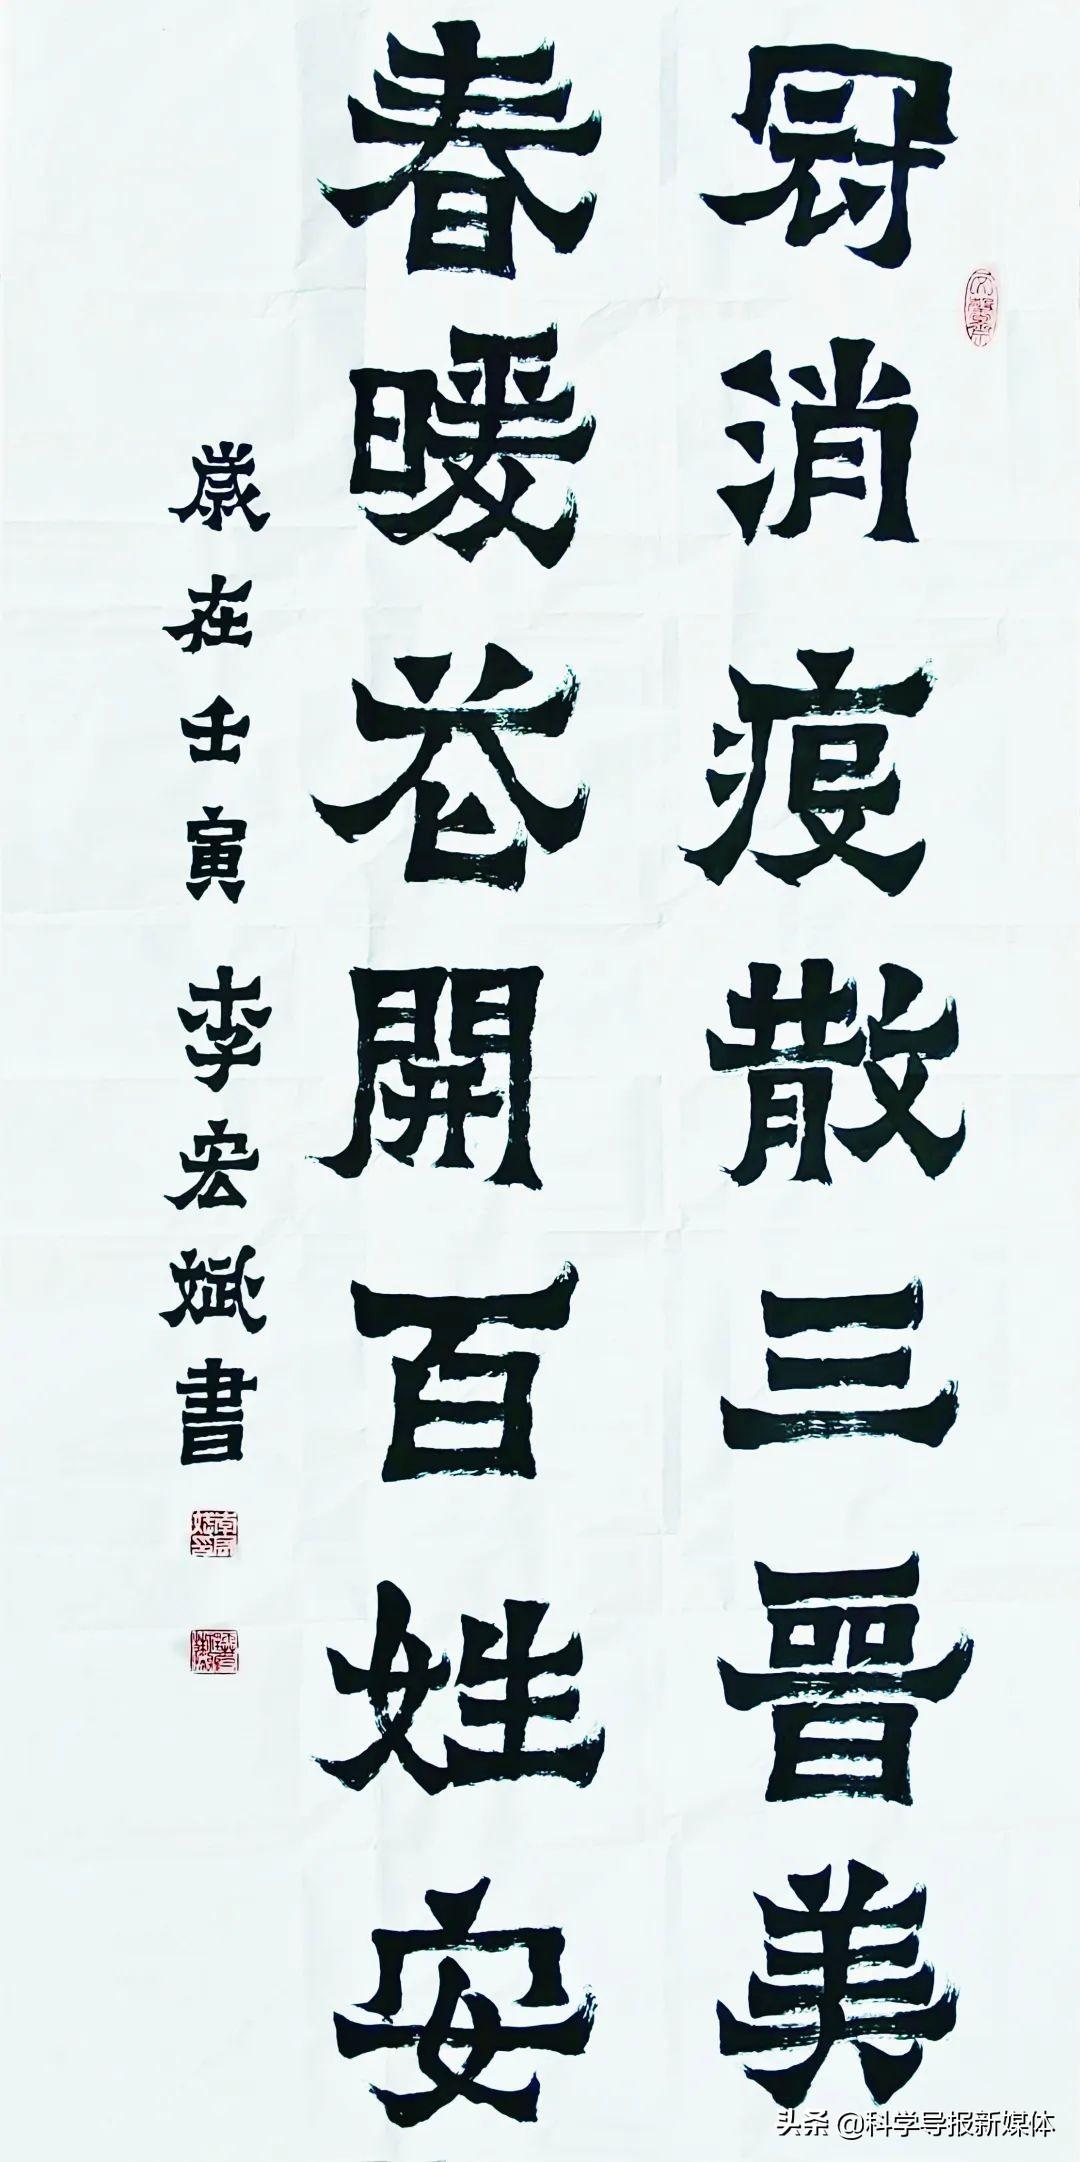 冠消疫散三晉美
春暖花開百姓安
歲在壬寅 李宏斌書
头条 @科学导报新媒体